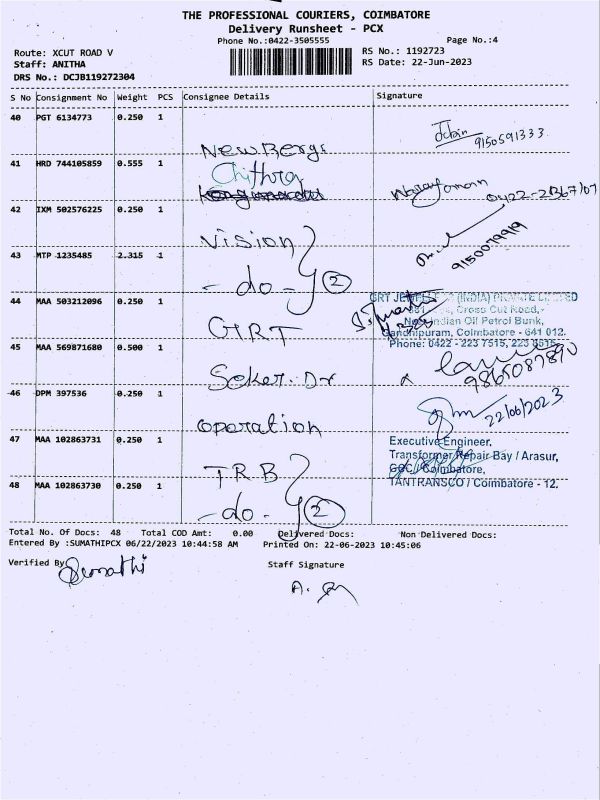 THE PROFESSIONAL COURIERS, COIMBATORE
Delivery Runsheet - PCX
Phone No.:0422-3505555
Page No.:4
Route: XCUT ROAD V
RS No.: 1192723
Staff: ANITHA
RS Date: 22-Jun-2023
DRS No.: DCJB119272304
S No Consignment No Weight PCS Consignee Details Signature
40 PGT 6134773 0.250 1
9150591333
New Bergs
41 HRD 744105859 0.555 1
Chithra
42 IXM 502576225 0.250 1
Vision
9150079919
43 MTP 1235485 2.315 1
- do - 2
44 MAA 503212096 0.250 1
GRT JEWELLERS (INDIA) PRIVATE LIMITED
Cross Cut Road,
Indian Oil Petrol Bunk,
Gandhipuram, Coimbatore - 641 012.
GRT
Phone: 0422 - 223 7515, 223 6515
45 MAA 569871680 0.500 1
Seker. Dr
46 DPM 397536 0.250 1
22/06/2023
operation
47 MAA 102863731 0.250 1
Executive Engineer,
Transformer Repair Bay / Arasur,
GCC / Coimbatore,
TANTRANSCO / Coimbatore - 12.
TRB
48 MAA 102863730 0.250 1
- do - 2
Total No. Of Docs: 48 Total COD Amt: 0.00 Delivered Docs: Non Delivered Docs:
Entered By :SUMATHIPCX 06/22/2023 10:44:58 AM Printed On: 22-06-2023 10:45:06
Verified By
Sumathi
Staff Signature